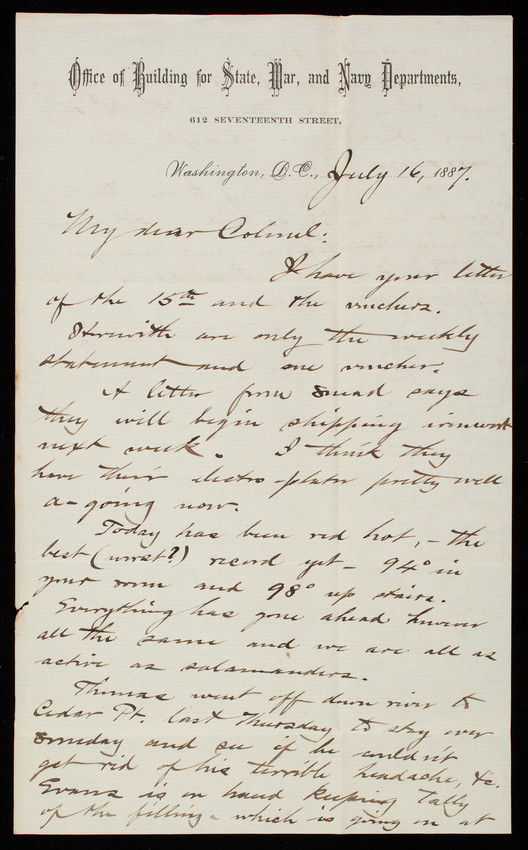 Office of Building for State, War, and Navy Departments,
612 SEVENTEENTH STREET,
Washington, D.C., July 16, 1887.
My dear Colonel:
I have your letter
of the 15th and the vouchers.
Herewith are only the weekly
statement and one voucher.
A letter from Snead says
they will begin shipping ironwork
next week. I think they
have their electro-plater pretty well
a-going now.
Today has been red hot, - the
best (worst?) record yet - 94° in
your room and 98° up stairs.
Everything has gone ahead however
all the same and we are all as
active as salamanders.
Thomas went off down river to
Cedar Pt. last Thursday to stay over
Sunday and see if he couldn't
get rid of his terrible headache, &c.
Evans is on hand keeping tally
of the filling which is going on at